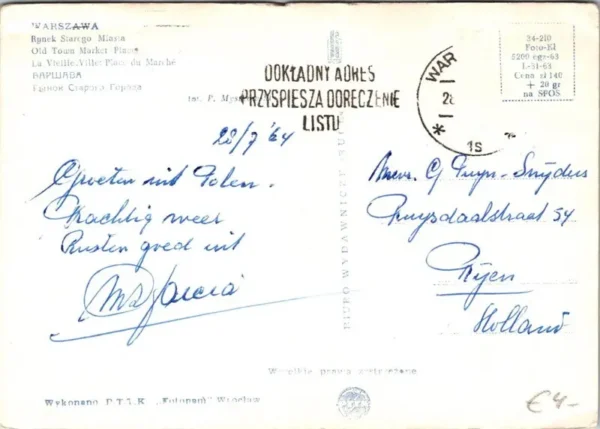 WARSZAWA
Rynek Starego Miasta
Old Town Market Place
La Vieille Ville: Place du Marché
ВАРШАВА
Рынок Старого Города
fot. P.
DOKŁADNY ADRES
PRZYSPIESZA DORĘCZENIE
LISTU
WAR
1S
34-210
Foto-El
5200 egz-63
L-31-63
Cena zł 1.40
+ 20 gr
na SFOS
28/7 '64
Groeten uit Polen.
Prachtig weer
Rusten goed uit
BIURO WYDAWNICZE „RUCH"
Mevr. G Puyn-Snijders
Ruysdaalstraat 54
Rijen
Holland
Wszelkie prawa zastrzeżone
Wykonano P.T.T.K. „Fotopam" Wrocław
€4-